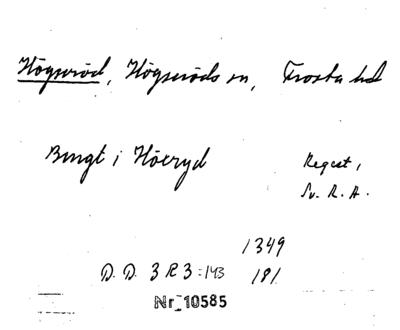 Högseröd, Högseröds sn, Frosta hd
Bengt i Höxryd
Regest i
Sv. R. A.
1349
D. D. 3 R 3:143 181
Nr 10585